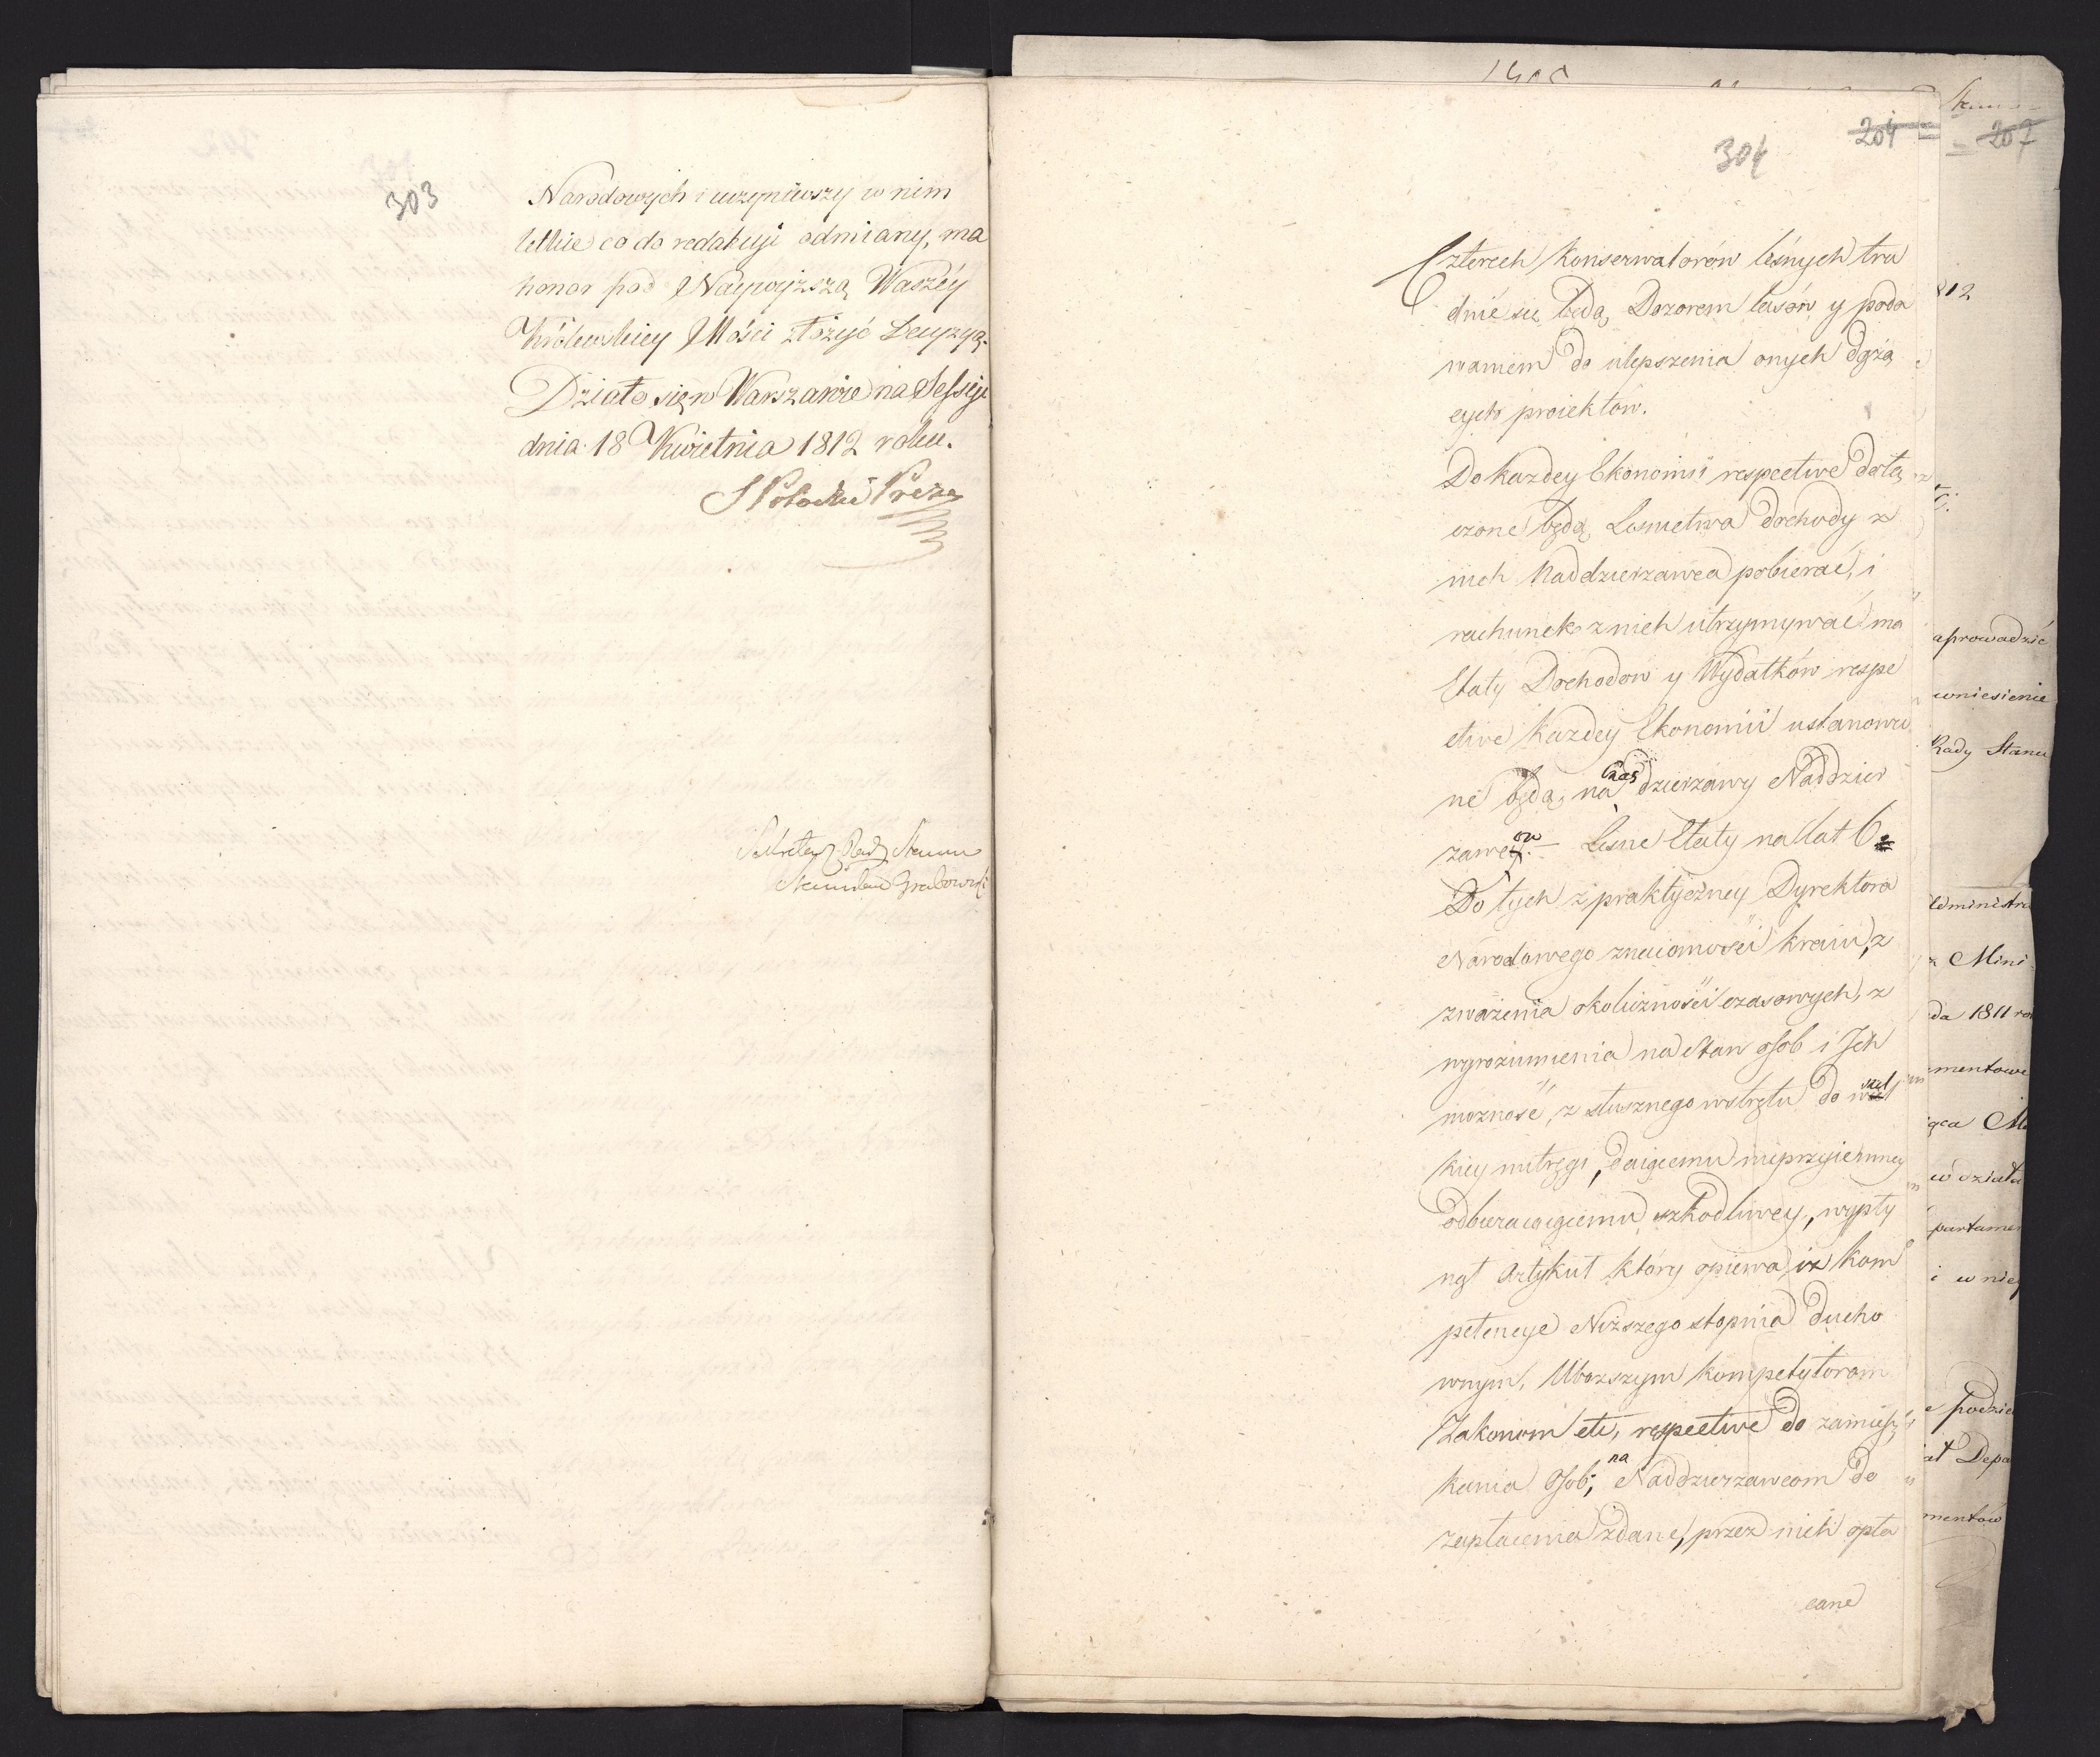 303
Narodowych i uczyniwszy w nim
letkie co do redakcyi odmiany, ma
honor pod Naywyższą Waszéy
Królewskiey Mości złożyć Decyzyą.
Działo się w Warszawie na Sessyi
dnia 18 Kwietnia 1812 roku.
S Potocki Prezes
Sekretarz Rady Stanu
Stanisław Grabowski
304
204
207
Czterech Konserwatorów leśnych tru
dnić się będą, Dozorem lasów y poda
waniem do ulepszenia onych dążą
cych proiektów.
Do każdey Ekonomii respective dołą
czone będą Lesnictwa dochody z
nich Naddzierzawca pobierać, i
rachunek z nich utrzymywać ma
Etaty Dochodow y Wydatków respe
ctive każdey Ekonomii ustanowio
ne będą, na czas dzierzawy Naddzier
zawców. Lesne Etaty na lat 6
Do tych z praktyczney Dyrektora
Narodowego znaiomości kraiu, z
zważenia okoliczności czasowych, z
wyrozumienia na stan osob i Ich
możność, z słusznego wstrętu do wszel
kiey mitręgi, daiącemu nieprzyiemney
odbieraiącemu szkodliwey, wypły
nął Artykuł który opiewa iż kom
petencye Niższego stopnia ducho
wnym, Uboższym kompetytorom
Zakonom etc, respective do zamiesz
kania Osob, na Naddzierzawcom do
zapłacenia zdane, przez nich opła
cane
812
aprowadzić
wniesienie
Rady Stanu
dministra
Mini
da 1811 ro
mentowe
w działa
partame
i w niey
podzie
at Depa
mentów